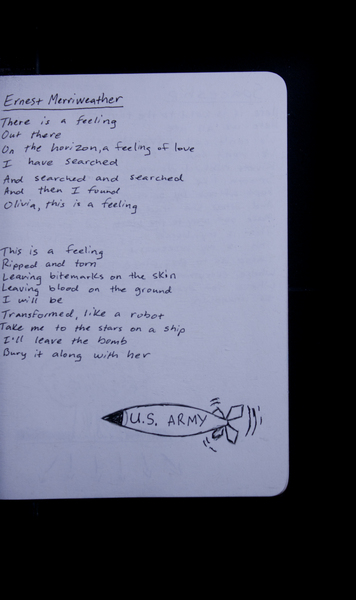 Ernest Merriweather
There is a feeling
Out there
On the horizon, a feeling of love
I have searched
And searched and searched
And then I found
Olivia, this is a feeling
This is a feeling
Ripped and torn
Leaving bitemarks on the skin
Leaving blood on the ground
I will be
Transformed, like a robot
Take me to the stars on a ship
I'll leave the bomb
Bury it along with her
U.S. ARMY